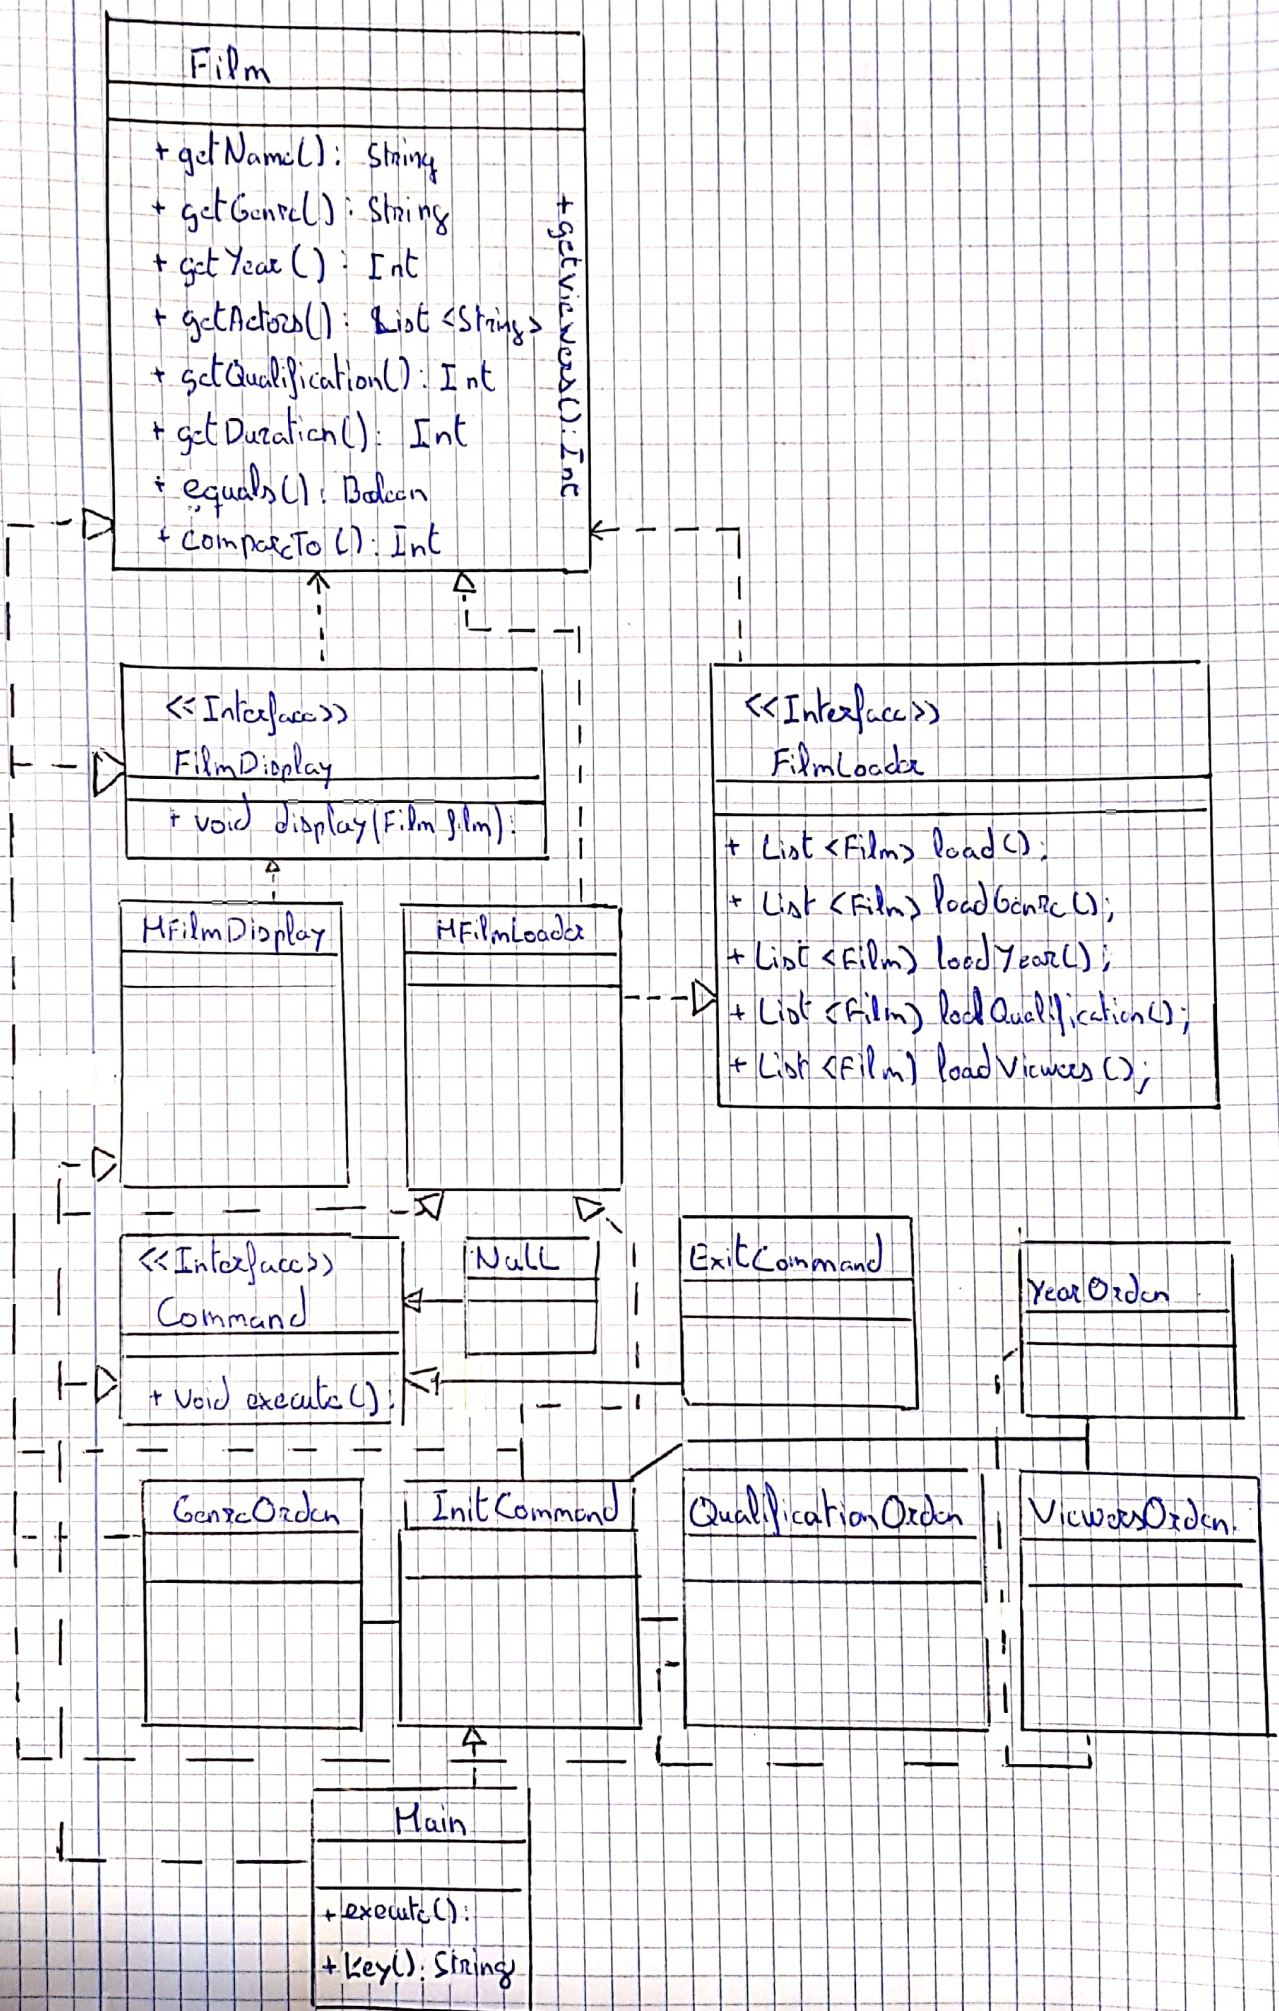 Film
+ getName(): String
+ getGenre(): String
+ getYear(): Int
+ getActors(): List <String>
+ getQualification(): Int
+ getDuration(): Int
+ equals(): Boolean
+ compareTo(): Int
+ getviewers(): Int
<<Interface>>
FilmDisplay
+ void display(Film film):
<<Interface>>
FilmLoader
+ List <Film> load();
+ List <Film> loadGenre();
+ List <Film> loadYear();
+ List <Film> loadQualification();
+ List <Film> loadViewers();
MFilmDisplay
MFilmLoader
<<Interface>>
Command
+ void execute():
Null
ExitCommand
YearOrden
GenreOrden
InitCommand
QualificationOrden
ViewersOrden
Main
+ execute():
+ Key(): String